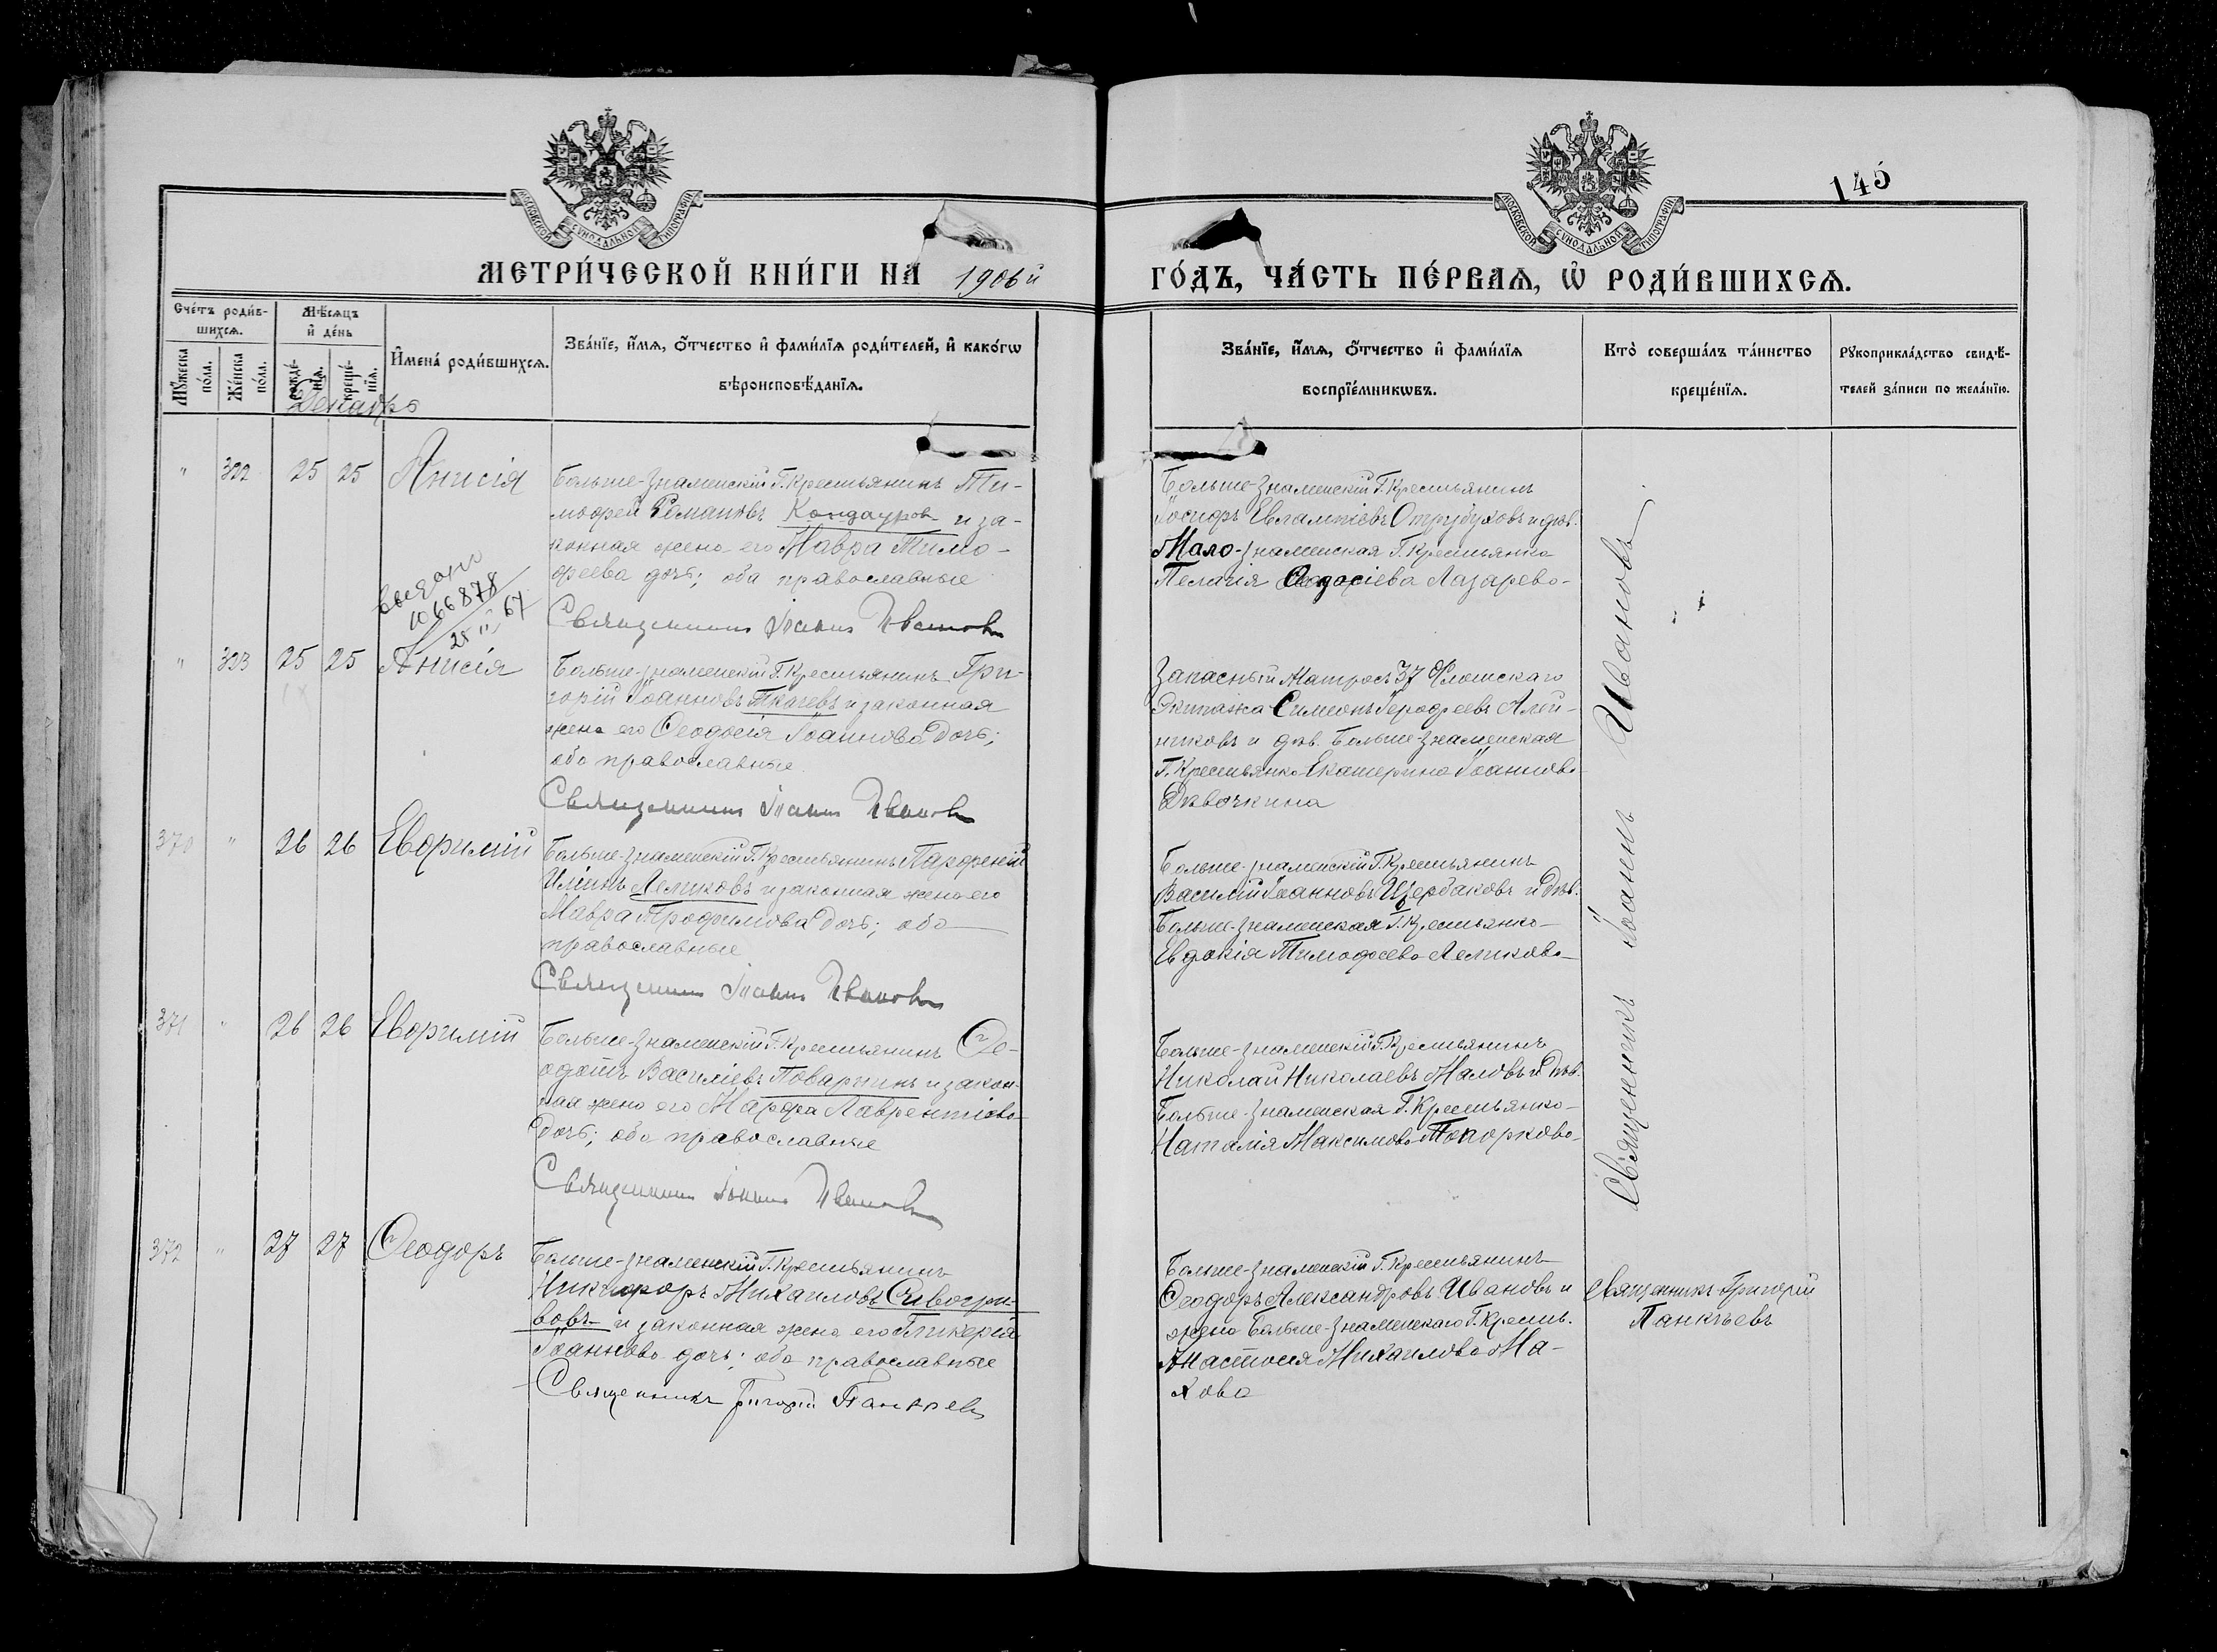 145
МОСКОВСКОЙ СѴНОДАЛЬНОЙ ТИПОГРАФІИ
МОСКОВСКОЙ СѴНОДАЛЬНОЙ ТИПОГРАФІИ
МЕТРИ́ЧЕСКОЙ КНИ́ГИ НА 1906й
ГО́ДЪ, ЧА́СТЬ ПЕ́РВАѦ, Ѡ҆ РОДИ́ВШИХСѦ.
Сче́тъ роди́в-
шихсѧ.
Мꙋ́жеска по́ла.
Же́нска по́ла.
Мѣ́сѧцъ
и҆ де́нь
рожде́-нїѧ.
креще́-нїѧ.
И҆мена̀ роди́вшихсѧ.
Зва́нїе, и҆́мѧ, ѻ҆́тчество и҆ фами́лїѧ роди́телей, и҆ како́гѡ
вѣроисповѣ́данїѧ.
Зва́нїе, и҆́мѧ, ѻ҆́тчество и҆ фами́лїѧ
воспрїе́мникѡвъ.
Кто̀ соверша́лъ та́инство
креще́нїѧ.
Рꙋкоприкла́дство свидѣ́-
телей за́писи по жела́нїю.
Декабрь
" 322 25 25 Анисія
Больше-Знаменскій Г. Крестьянинъ Ти-
моѳей Романовъ Кондауров и за-
конная жена его Мавра Тимо-
ѳеева дочь; оба православные
Священникъ Іоаннъ Ивановъ
Больше-Знаменскій Г. Крестьянинъ
Іосифъ Евлампіевъ Отрубуховъ и дѣв.
Мало-Знаменская Г. Крестьянка
Пелагія Ѳеодосіева Лазарева
выдано
1066878
28 II 64
" 323 25 25 Анисія
Больше-Знаменскій Г. Крестьянинъ Гри-
горій Іоанновъ Ткачевъ и законная
жена его Ѳеодосія Іоаннова дочь;
оба православные
Священникъ Іоаннъ Ивановъ
Запасный Матросъ 37 Флотскаго
Экипажа Симеонъ Іероѳеевъ Алей-
никовъ и дѣв. Больше-Знаменская
Г. Крестьянка Екатерина Іоаннова
Дѣвочкина
370 " 26 26 Евѳимій
Больше-Знаменскій Г. Крестьянинъ Парѳеній
Иліинъ Лепиховъ и законная жена его
Мавра Трофимова дочь; оба
православные
Священникъ Іоаннъ Ивановъ
Больше-Знаменскій Г. Крестьянинъ
Василій Іоанновъ Щербаковъ и Дѣв.
Больше-Знаменская Г. Крестьянка
Евдокія Тимоѳеева Лепихова
371 " 26 26 Евѳимій
Больше-Знаменскій Г. Крестьянинъ Ѳе-
одотъ Василіевъ Поварнинъ и закон-
ная жена его Марѳа Лаврентіева
дочь; оба православные
Священникъ Іоаннъ Ивановъ
Больше-Знаменскій Г. Крестьянинъ
Николай Николаевъ Маловъ и Дѣв.
Больше-Знаменская Г. Крестьянка
Наталія Максимова Топоркова
Священникъ Іоаннъ Ивановъ
372 " 27 27 Ѳеодоръ
Больше-Знаменскій Г. Крестьянинъ
Никифоръ Михаиловъ Сивогри-
вовъ и законная жена его Гликерія
Іоаннова дочь; оба православные
Священникъ Григорій Панкѣевъ
Больше-Знаменскій Г. Крестьянинъ
Ѳеодоръ Александровъ Ивановъ и
жена Больше-Знаменскаго Г. Крестьн.
Анастасія Михаилова Ма-
хова
Священникъ Григорій
Панкѣевъ